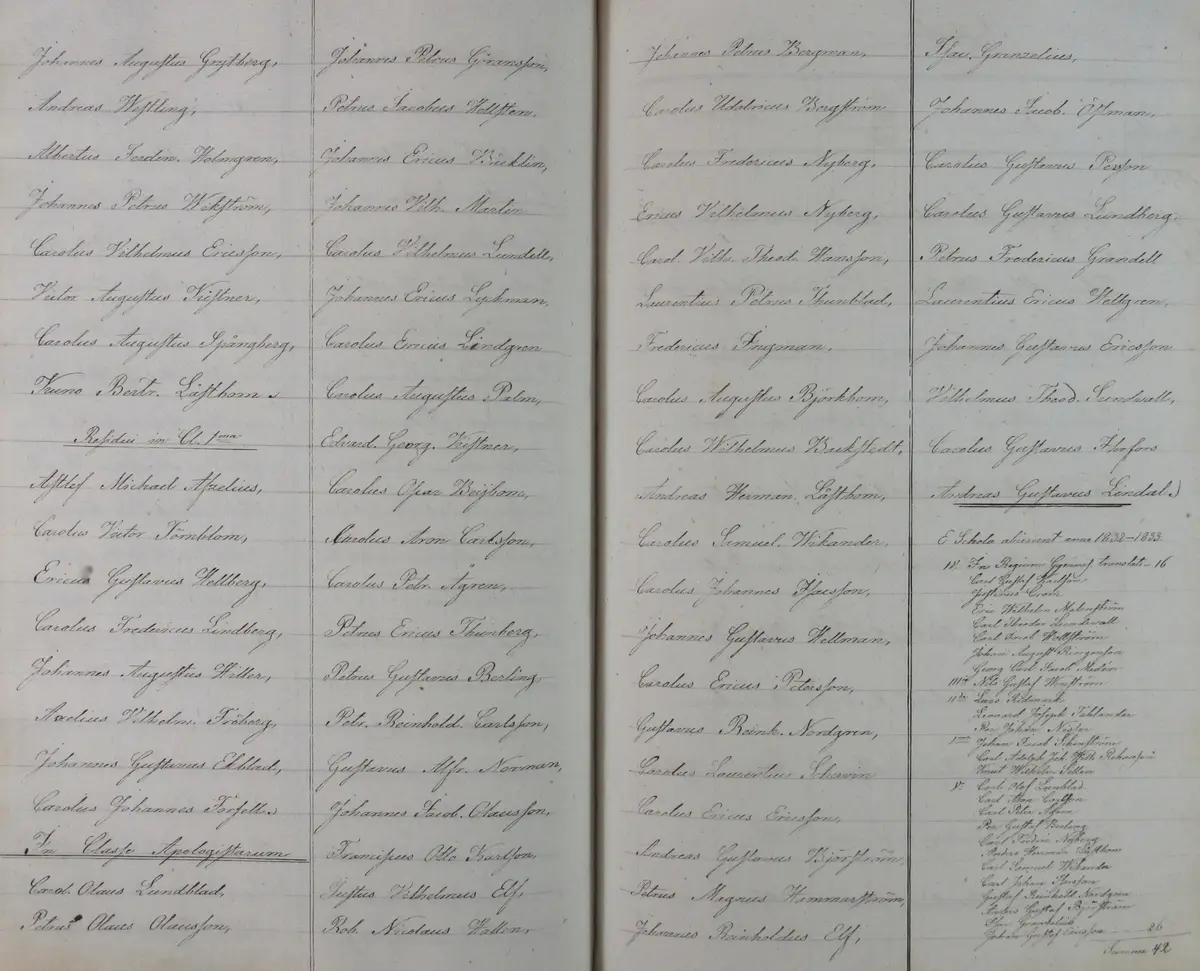 Johannes Augustus Grytberg,
Andreas Westling,
Albertus Ferdin. Holmgren,
Johannes Petrus Wekström,
Carolus Vilhelmus Ericsson,
Victor Augustus Kistner,
Carolus Augustus Spångberg,
Kuno Bertr. Läfthom
Residui in Cl. 1ma
Michael Afzelius,
Carolus Victor Törnblom,
Ericus Gustavus Hellberg,
Carolus Fredericus Lindberg,
Johannes Augustus Witter,
Axelius Vilhelm. Fröberg,
Johannes Gustavus Ekblad,
Carolus Johannes Forsell
In Classe Apologistarum
Carol. Olaus Lundblad,
Petrus Olaus Olausson,
Johannes Petrus Göransson,
Petrus Jacobus Hellsten.
Johannes Ericus Bäcklin,
Johannes Vilh. Martin
Carolus Vilhelmus Lundell,
Johannes Ericus Lychman.
Carolus Ericus Lindgren
Carolus Augustus Palm,
Edvard. Georg. Kistner,
Carolus Oscar Beijhom,
Carolus Aron Carlsson,
Carolus Petr. Ågren,
Petrus Ericus Thunberg,
Petrus Gustavus Berling
Petr. Reinhold. Carlsson,
Gustavus Alfr. Norman,
Johannes Jacob. Olausson,
Franciscus Otto Karlson,
Justus Vilhelmus Elf,
Rob. Nicolaus Hallen,
Johannes Petrus Bergman,
Carolus Udalricus Bergström
Carolus Fredericus Nyberg,
Ericus Vilhelmus Nyberg,
Carol. Vilh. Theod. Hansson,
Laurentius Petrus Thunblad,
Fredericus Frugman,
Carolus Augustus Björkhom,
Carolus Wilhelmus Backstedt,
Andreas Herman. Läfthom,
Carolus Samuel. Wikander,
Carolus Johannes Isacsson,
Johannes Gustavus Hellman,
Carolus Ericus Petersson,
Gustavus Reink. Nordgren,
Carolus Laurentius Schevin
Carolus Ericus Ericsson,
Andreas Gustavus Björström,
Petrus Magnus Hammarström,
Johannes Reinholdus Elf,
Isac. Granzelius,
Johannes Jacob. Östman,
Carolus Gustavus Persson
Carolus Gustavus Lundberg
Petrus Fredericus Grandell
Laurentius Ericus Hellgren,
Johannes Gustavus Ericsson
Vilhelmus Theod. Sundvall,
Carolus Gustavus Ahlfors
Andreas Gustavus Lindal
E Schola abierunt anno 1832-1833
In Regium Gymnas. translati - 16
Carl Gustaf Carlson
Justinus Cram
Eric Wilhelm Malmström
Carl Theodor Lundwall
Carl Amal Hellström
Johan August Ringenson
Georg Carl Jacob Medin
Nils Gustaf Wiström
Lars Ridmark
Leonard Joseph Tehlander
Per Johan Nester
Johan Jacob Schenström
Carl Adolph Joh. Wilh. Rehausen
Knut Wilhelm Sellen
Carl Olof Lundblad
Carl Aron Carlson
Carl Peter Ågren
Per Gustaf Berling
Carl Fredric Nyberg
Anders Herman Läfthom
Carl Samuel Wikander
Carl Johan Isacsson
Gustaf Reinhold Nordgren
Anders Gustaf Björström
Isac Granzelius
Johan Gustaf Ericsson - 26
Summa 42